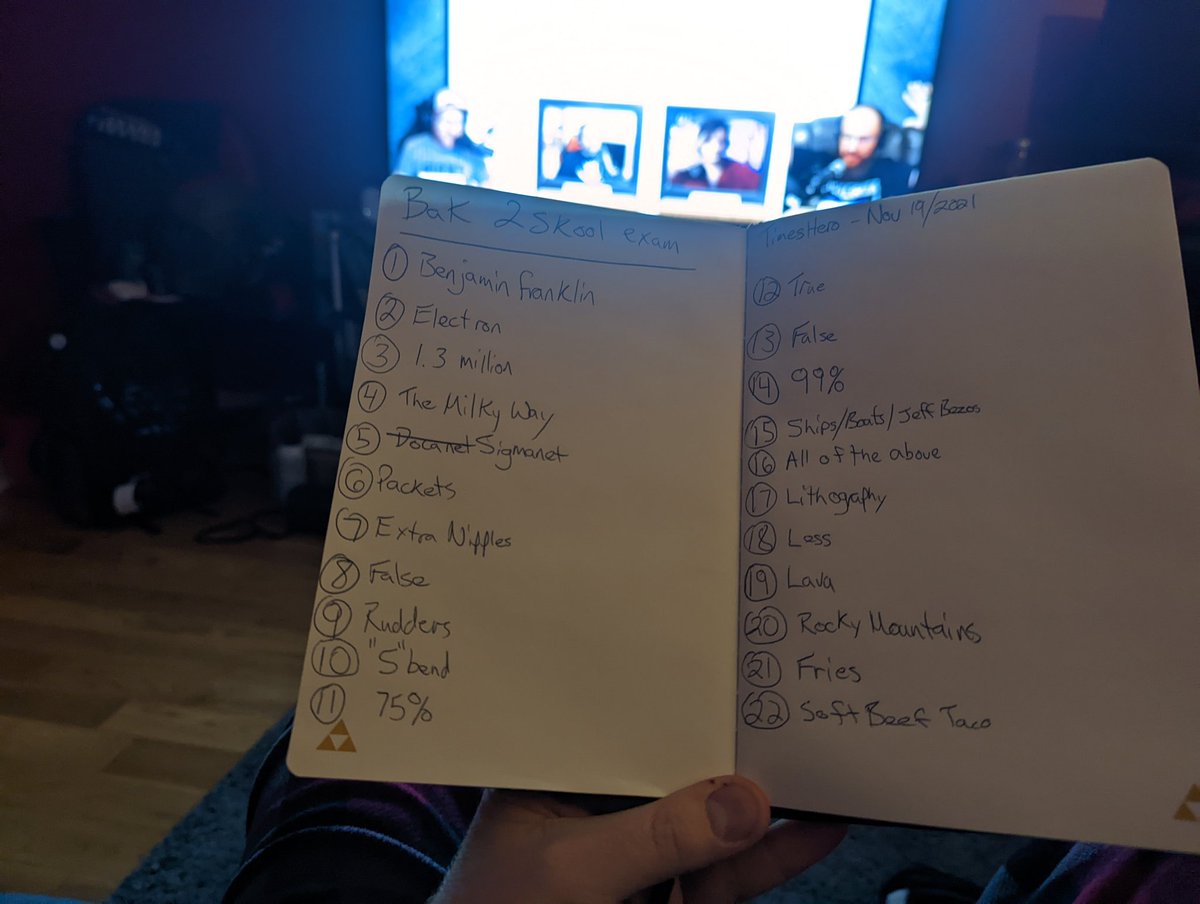 Bak 2 Skool exam
① Benjamin Franklin
② Electron
③ 1.3 million
④ The Milky Way
⑤ Docanet Sigmanet
⑥ Packets
⑦ Extra Nipples
⑧ False
⑨ Rudders
⑩ "S" bend
⑪ 75%
TimesHero - Nov 19/2021
⑫ True
⑬ False
⑭ 99%
⑮ Ships/Boats/Jeff Bezos
⑯ All of the above
⑰ Lithography
⑱ Less
⑲ Lava
⑳ Rocky Mountains
㉑ Fries
㉒ Soft Beef Taco